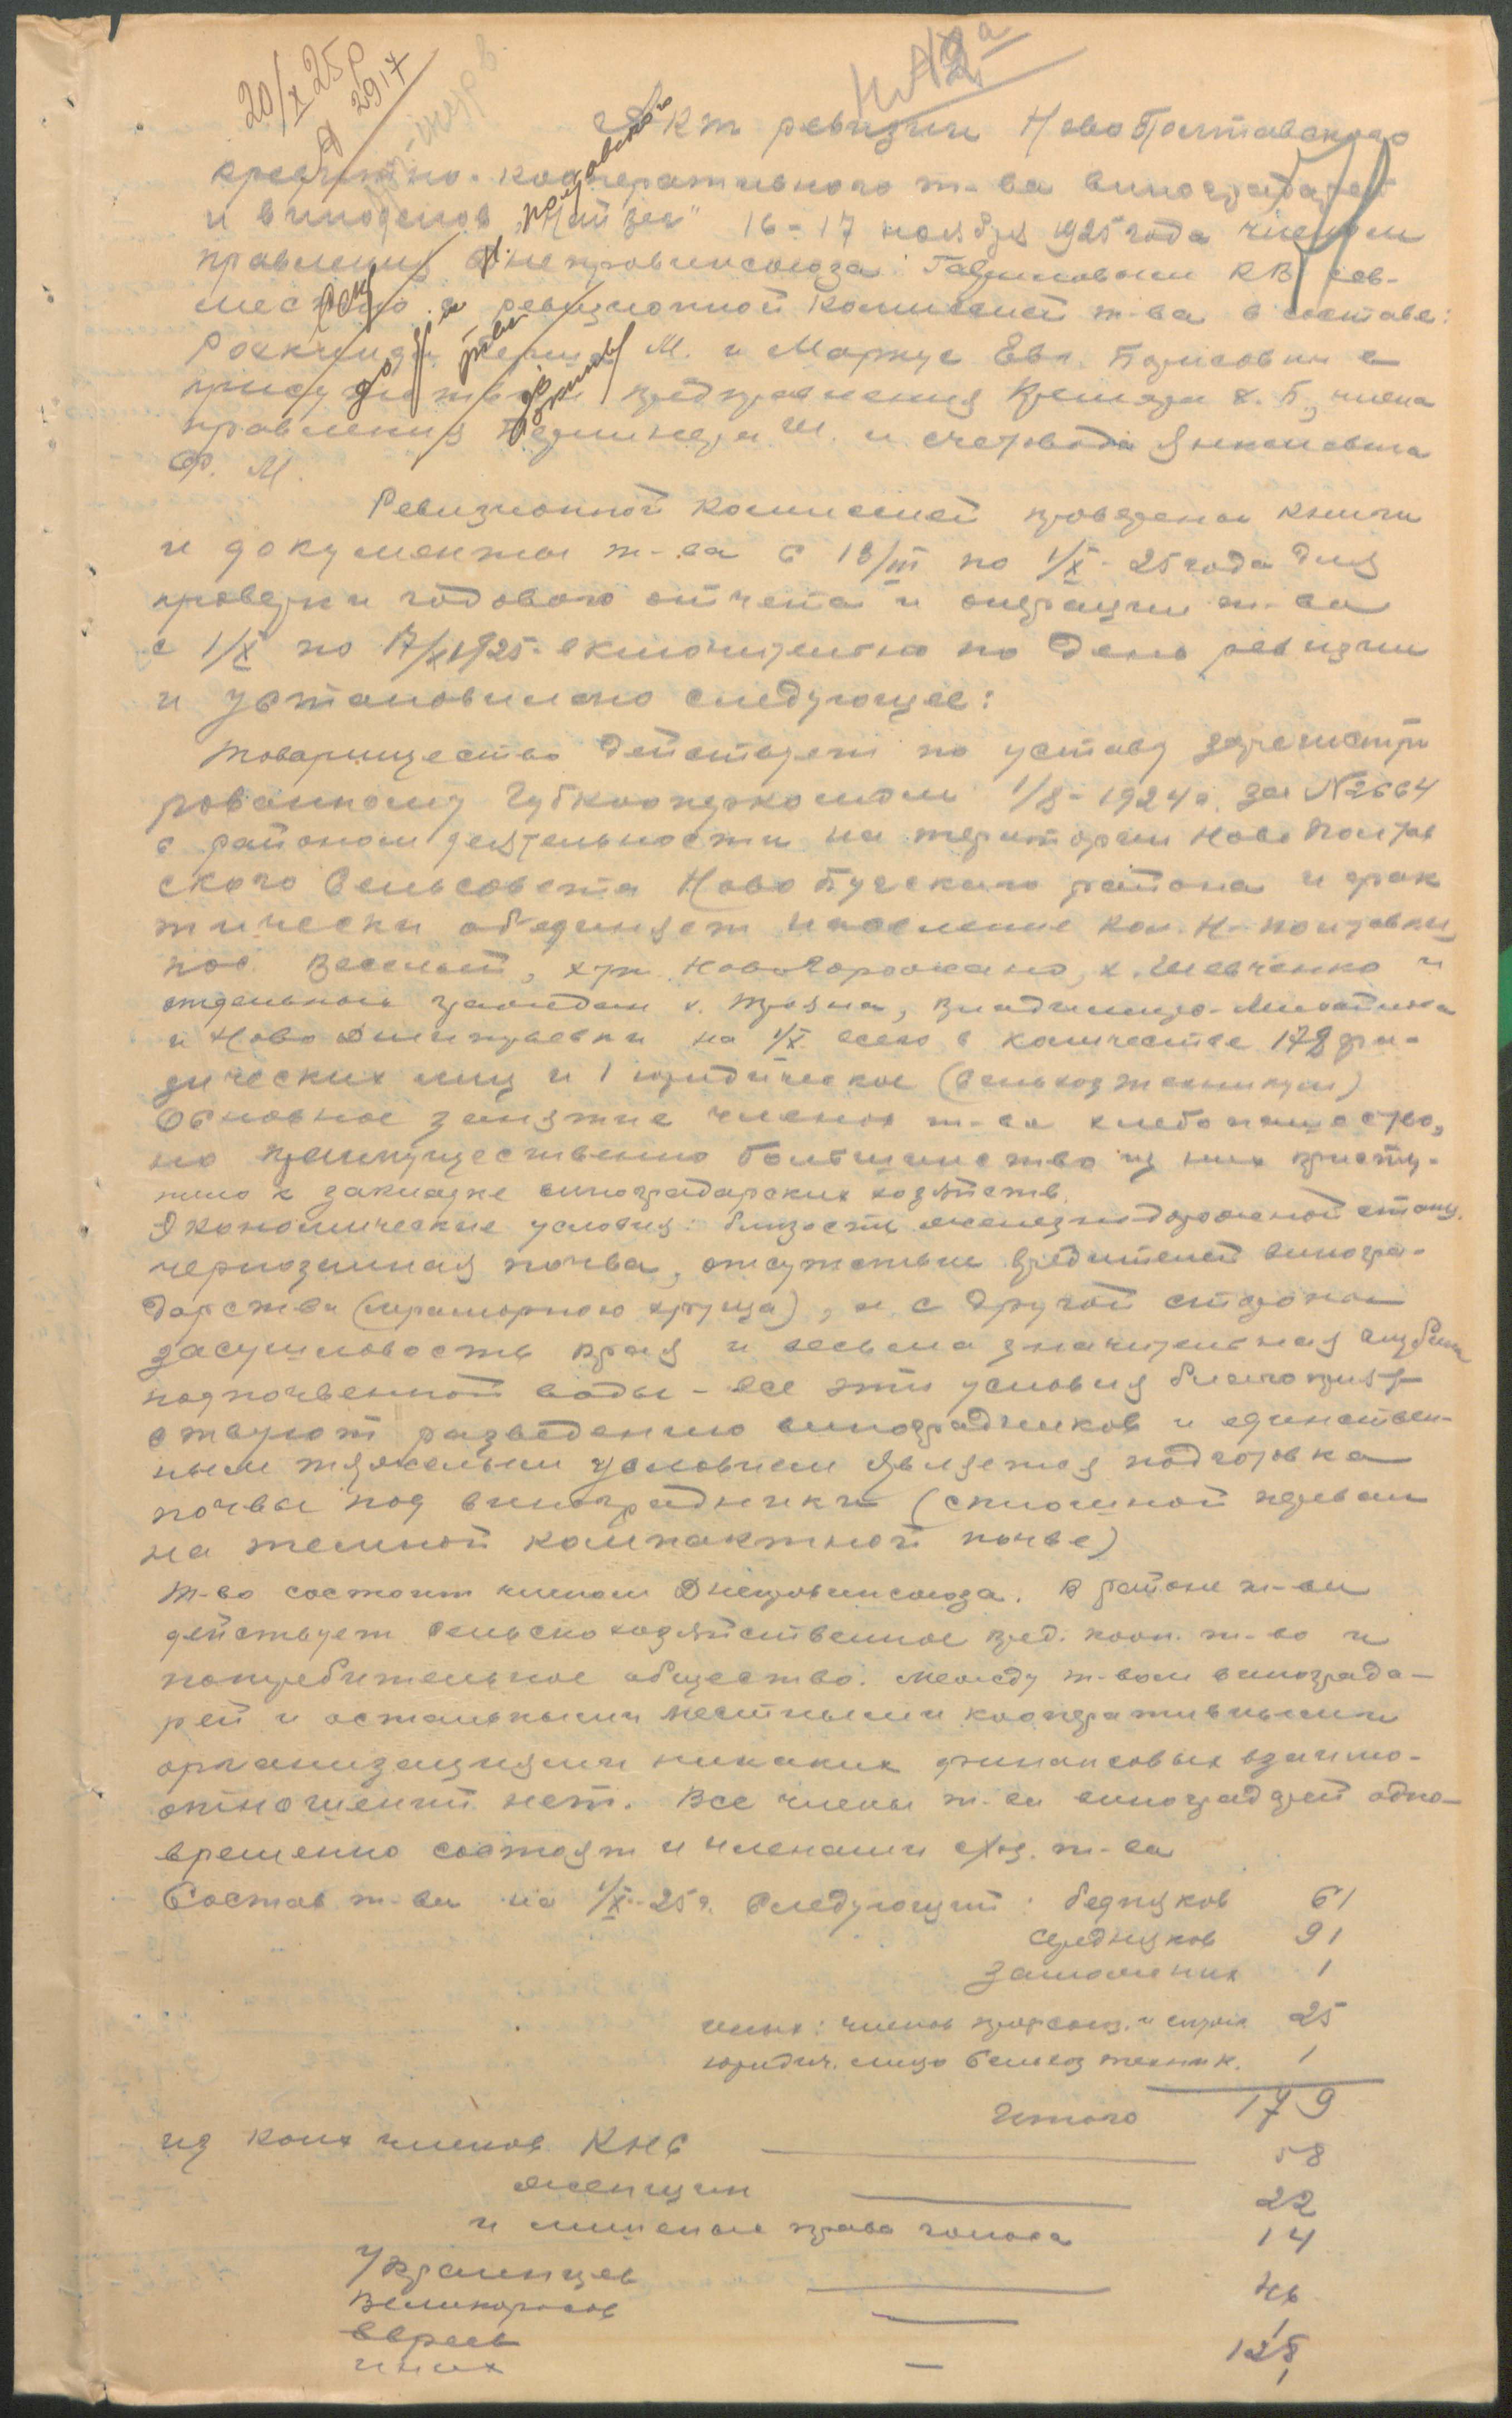 20/X 25 р
2917
Акт ревизии Ново Полтавского
кредитно-кооперативного т-ва виноградарей
и виноделов 16-17 ноября 1925 года членом
правления Днепровинсоюза: КВ сов-
местно с ревизионной комиссией т-ва в составе:
М. и Маркус Евг. Борисовны в
присутствии предправления х. Б, члена
правления Ш. и счетовода
Ф. М.
Ревизионной комиссией проведены книги
и документы т-ва с 18/III по 1/X-25 года для
проверки годового отчета и операции т-ва
с 1/X по 17/XI 1925 включительно по день ревизии
и установлено следующее:
Товарищество действует по уставу зарегистри
рованному Губкооперкомитом 1/8-1924 г. за № 2664
с районом деятельности на територии Ново Полтав
ского Сельсовета Ново Бугского района и фак
тически обединяет население кол. Н-Полтавки
пос. Веселый, хут. х. Шевченко и
отдельных граждан х. Владимиро-
и Ново Дмитриевки на 1/X всего в количестве 178 фи-
зических лиц и 1 юридическое (Сельхозтехникум)
Основное занятие членов т-ва хлебопашество,
но преимущественно большинство из них присту-
пило к закладке виноградарских хозяйств.
Экономические условия: близость железнодорожной станц.
черноземная почва, отсутствие вредителей виногра-
дарства (мраморного хруща), и с другой стороны
засушливость края и весьма значительная глубина
подпочвенной воды - все эти условия благоприят-
ствуют разведению виноградников и единствен-
ным тяжелым условием является подготовка
почвы под виноградники (сплошной перевал
на темной компактной почве)
Т-во состоит членом Днепровинсоюза. В районе т-ва
действует сельскохозяйственное кред. кооп. т-во и
потребительное общество. Между т-вом винограда-
рей и остальными местными кооперативными
организациями никаких финансовых взаимо-
отношений нет. Все члены т-ва виноградарей одно-
временно состоят и членами с/хоз. т-ва
Состав т-ва на 1/X-25 г. следующий: бедняков 61
середняков 91
заможних 1
иных: членов профсоюз. и 25
юридич. лицо Сельхоз техник. 1
Итого 179
из коих членов КНС 58
женщин 22
и лишеные права голоса 14
Украинцев
Великоросов
евреев 128
иных 1